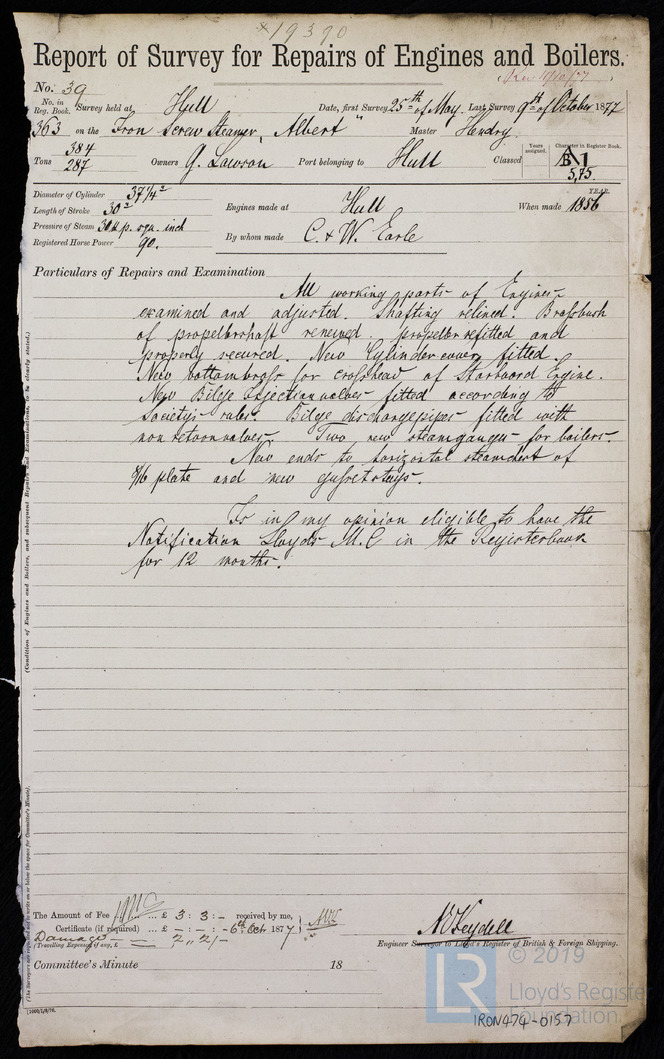 *19390
Report of Survey for Repairs of Engines and Boilers.
Rec 19/10/77
No. 39
No. in Reg. Book. Survey held at Hull Date, first Survey 25th of May Last Survey 9th of October 1877
363 on the Iron Screw Steamer "Albert" Master Hendry
Tons 384 287 Owners G. Lawson Port belonging to Hull Classed Years assigned. Character in Register Book. A1 5,75.
Diameter of Cylinder 37 1/4"
Length of Stroke 30"
Pressure of Steam 30 lb p. squ. inch
Registered Horse Power 90.
Engines made at Hull When made YEAR. 1856
By whom made C. & W. Earle
Particulars of Repairs and Examination
All working parts of Engines
examined and adjusted. Shafting relined. Brassbush
of propellershaft renewed propeller refitted and
properly secured. New Cylindercover fitted.
New bottombrass for crosshead of Starboard Engine.
New Bilge injectionvalves fitted according to
Society's rules. Bilge dischargepipes fitted with
non returnvalves. Two new steamgauges for boilers.
New ends to horizontal steamchest of
9/16 plate and new gussetstays.
Is in my opinion eligible to have the
Notification Lloyds M.C in the Registerbook
for 12 months.
(Condition of Engines and Boilers, and subsequent Repairs and Examinations, to be clearly stated.)
The Amount of Fee ... £ 3 : 3 : - received by me,
Certificate (if required) ... £ - : - : - 6th Oct 1877
Damage 2 ,, 2/-
(Travelling Expenses if any, £
Engineer Surveyor to Lloyd's Register of British & Foreign Shipping.
Committee's Minute 18
© 2019
LR
Lloyd's Register
Foundation
IRON474-0157